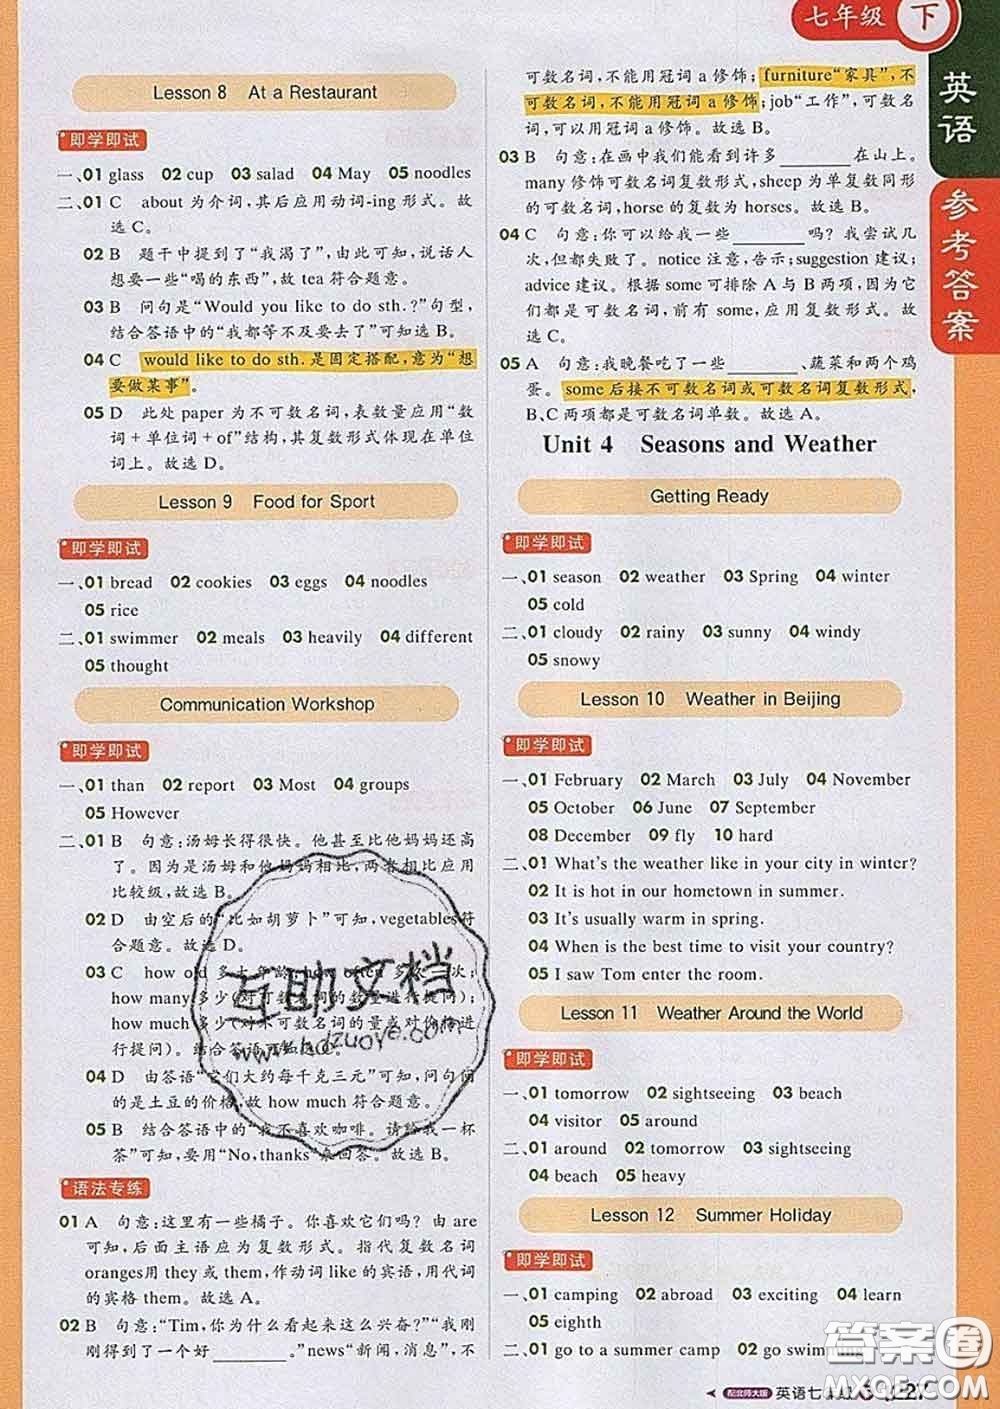 七年级 下
英语
参考答案
Lesson 8 At a Restaurant
即学即试
一、01 glass 02 cup 03 salad 04 May 05 noodles
二、01 C about 为介词,其后应用动词-ing 形式。故
选 C。
02 B 题干中提到了“我渴了”,由此可知,说话人
想要一些“喝的东西”,故 tea 符合题意。
03 B 问句是“Would you like to do sth.?”句型,
结合答语中的“我都等不及要去了”可知选 B。
04 C would like to do sth. 是固定搭配,意为“想
要做某事”。
05 D 此处 paper 为不可数名词,表数量应用“数
词+单位词+of”结构,其复数形式体现在单位
词上。故选 D。
Lesson 9 Food for Sport
即学即试
一、01 bread 02 cookies 03 eggs 04 noodles
05 rice
二、01 swimmer 02 meals 03 heavily 04 different
05 thought
Communication Workshop
即学即试
一、01 than 02 report 03 Most 04 groups
05 However
二、01 B 句意:汤姆长得很快。他甚至比他妈妈还高
了。因为是汤姆和他妈妈相比,两者相比应用
比较级,故选 B。
02 D 由空后的“比如胡萝卜”可知,vegetables符
合题意。故选 D。
03 C how old 多大年龄;how often 多久一次;
how many 多少(对可数名词的数量进行提问);
how much 多少(对不可数名词的量或对价格进
行提问)。结合答语可知选 C。
04 D 由答语“它们大约每千克三元”可知,问句问
的是土豆的价格,故 how much 符合题意。
05 B 结合答语中的“我不喜欢咖啡。请给我一杯
茶”可知,要用“No,thanks”来回答。故选 B。
语法专练
01 A 句意:这里有一些橘子。你喜欢它们吗? 由 are
可知,后面主语应为复数形式。指代复数名词
oranges用 they 或 them,作动词 like 的宾语,用代词
的宾格 them。故选 A。
02 B 句意:“Tim,你为什么看起来这么兴奋?”“我刚
刚得到了一个好 ______。”news“新闻,消息”,不
可数名词,不能用冠词 a 修饰;furniture“家具”,不
可数名词,不能用冠词 a 修饰;job“工作”,可数名
词,可以用冠词 a 修饰。故选 B。
03 B 句意:在画中我们能看到许多 ______ 在山上。
many 修饰可数名词复数形式,sheep 为单复数同形
的可数名词,horse 的复数为 horses。故选 B。
04 C 句意:你可以给我一些 ______ 吗? 我尝试几
次,但都失败了。notice 注意,告示;suggestion 建议;
advice 建议。根据 some 可排除 A 与 B 两项,因为它
们都是可数名词,前有 some,应用复数形式。故
选 C。
05 A 句意:我晚餐吃了一些 ______、蔬菜和两个鸡
蛋。some 后接不可数名词或可数名词复数形式,
B、C 两项都是可数名词单数。故选 A。
Unit 4 Seasons and Weather
Getting Ready
即学即试
一、01 season 02 weather 03 Spring 04 winter
05 cold
二、01 cloudy 02 rainy 03 sunny 04 windy
05 snowy
Lesson 10 Weather in Beijing
即学即试
一、01 February 02 March 03 July 04 November
05 October 06 June 07 September
08 December 09 fly 10 hard
二、01 What's the weather like in your city in winter?
02 It is hot in our hometown in summer.
03 It's usually warm in spring.
04 When is the best time to visit your country?
05 I saw Tom enter the room.
Lesson 11 Weather Around the World
即学即试
一、01 tomorrow 02 sightseeing 03 beach
04 visitor 05 around
二、01 around 02 tomorrow 03 sightseeing
04 beach 05 heavy
Lesson 12 Summer Holiday
即学即试
一、01 camping 02 abroad 03 exciting 04 learn
05 eighth
二、01 go to a summer camp 02 go swimming
配北师大版 英语七
互助文档
www.hdzuoye.com
答案卷
MXQE.COM